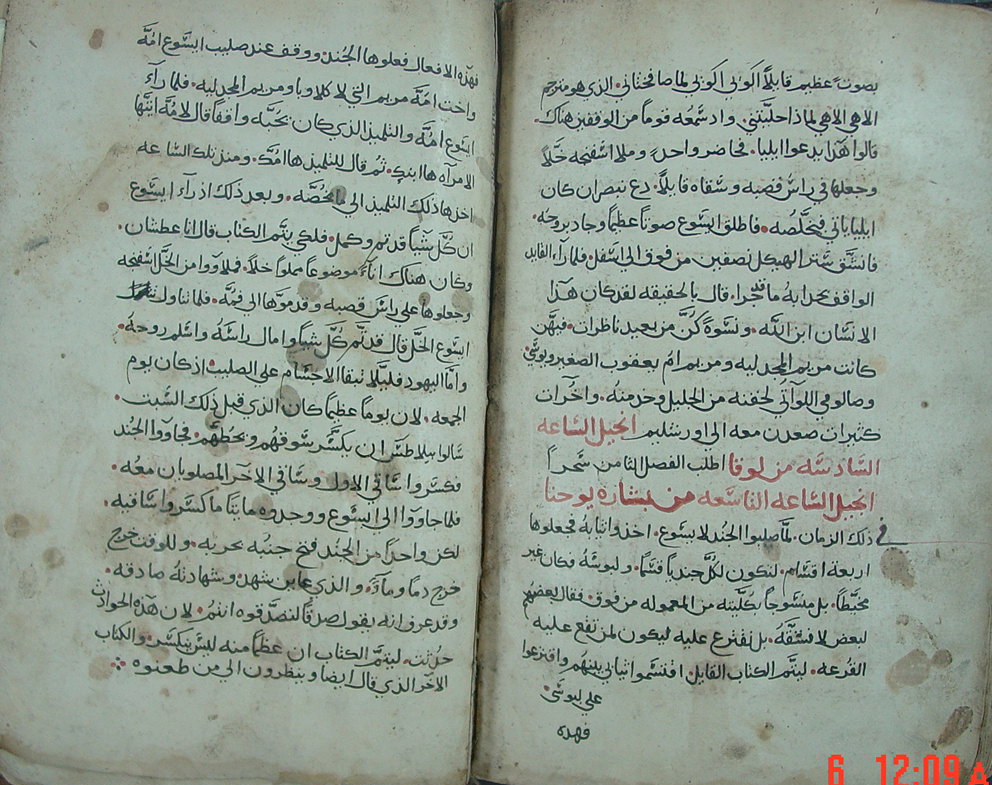 بصوت عظيم قايلاً اكوبي اكوبي لما صافختاني. الذي هو مترجم
الاهي الاهي لماذا خليتني. واذ سمعه قوماً من الوقفين هناك
قالوا هذا يدعوا ايليا. فحاضر واحد وملا اسفنجه خلاً
وجعلها في راس قصبه وسقاه قايلاً. دع ننصر ان كان
ايليا ياتي فيخلصه. فاطلق ايسوع صوتاً عظيماً وجاد بروحه.
فانشق ستر الهيكل نصفين من فوق الي اسفل فلما راء القايد
الواقف بحدايه ما قد جرا. قال بالحقيقه لقد كان هذا
الانسان ابن الله. ونسوة كن من بعيد ناظرات. فيهن
كانت مريم المجدليه ومريم ام يعقوب الصغير ويوسي.
وصالومي اللواتي لحقنه من الجليل وخدمنه. واخرات
كثيرات صعدن معه الي اورشليم انجيل الساعه
السادسه من لوقا اطلب الفصل الثامن سحراً
انجيل الساعه التاسعه من بشارة يوحنا
في ذلك الزمان. لما صلبوا الجند لايسوع. اخذوا ثيابه فجعلوها
اربعة اقسام. لتكون لكل جندياً قسماً. ولبوسه فكان غير
مخيطاً. بل منسوجاً بكليته من المعموله من فوق. فقال بعضهم
لبعض لا نشقه. بل نقترع عليه ليكون لمن تقع عليه
القرعه. ليتم الكتاب القايل. اقتسموا ثيابي بينهم واقترعوا
علي لبوسي.
فهذه
فهذه الافعال فعلوها الجند. ووقف عند صليب ايسوع امه
واخت امه مريم التي لاكلاوبا ومريم المجدليه. فلما راء
ايسوع امه والتلميذ الذي كان يحبه واقفاً قال لامه ايتها
الامرآه ها ابنكِ. ثم قال للتلميذ ها امك. ومنذ تلك الساعه
اخذها ذلك التلميذ الي خصه. وبعد ذلك اذ راء ايسوع
ان كل شياً قد تم وكمل. فلكي يتم الكتاب قال انا عطشان.
وكان هناك اناء موضوعاً مملوا خلاً. فملاووا من الخل اسفنجه
وجعلوها علي راس قصبه وقدموها الي فمه. فلما تناول
ايسوع الخل قال قد تم كل شياً وامال راسه واسلم روحه.
واما اليهود فليلا تبقا الاجسام علي الصليب اذ كان يوم
الجمعه. لان يوماً عظيماً كان الذي قبل ذلك السبت.
سالوا بيلاطس ان يكسر سوقهم ويحطهم. فجاووا الجند
فكسروا ساقي الاول وساقي الاخر المصلوبان معه.
فلما جاووا الي ايسوع ووجدوه مايتاً ما كسروا ساقيه.
لكن واحداً من الجند فتح جنبه بحربه. وللوقت خرج
خرج دماً وماءً. والذي عاين شهد وشهادته صادقه.
وقد عرف انه يقول صدقاً لتصدقوه انتم. لان هذه الحوادث
حدثت. ليتم الكتاب ان عظماً منه ليس ينكسر. والكتاب
الاخر الذي قال ايضاً وينظرون الي من طعنوه
6 12:09 A